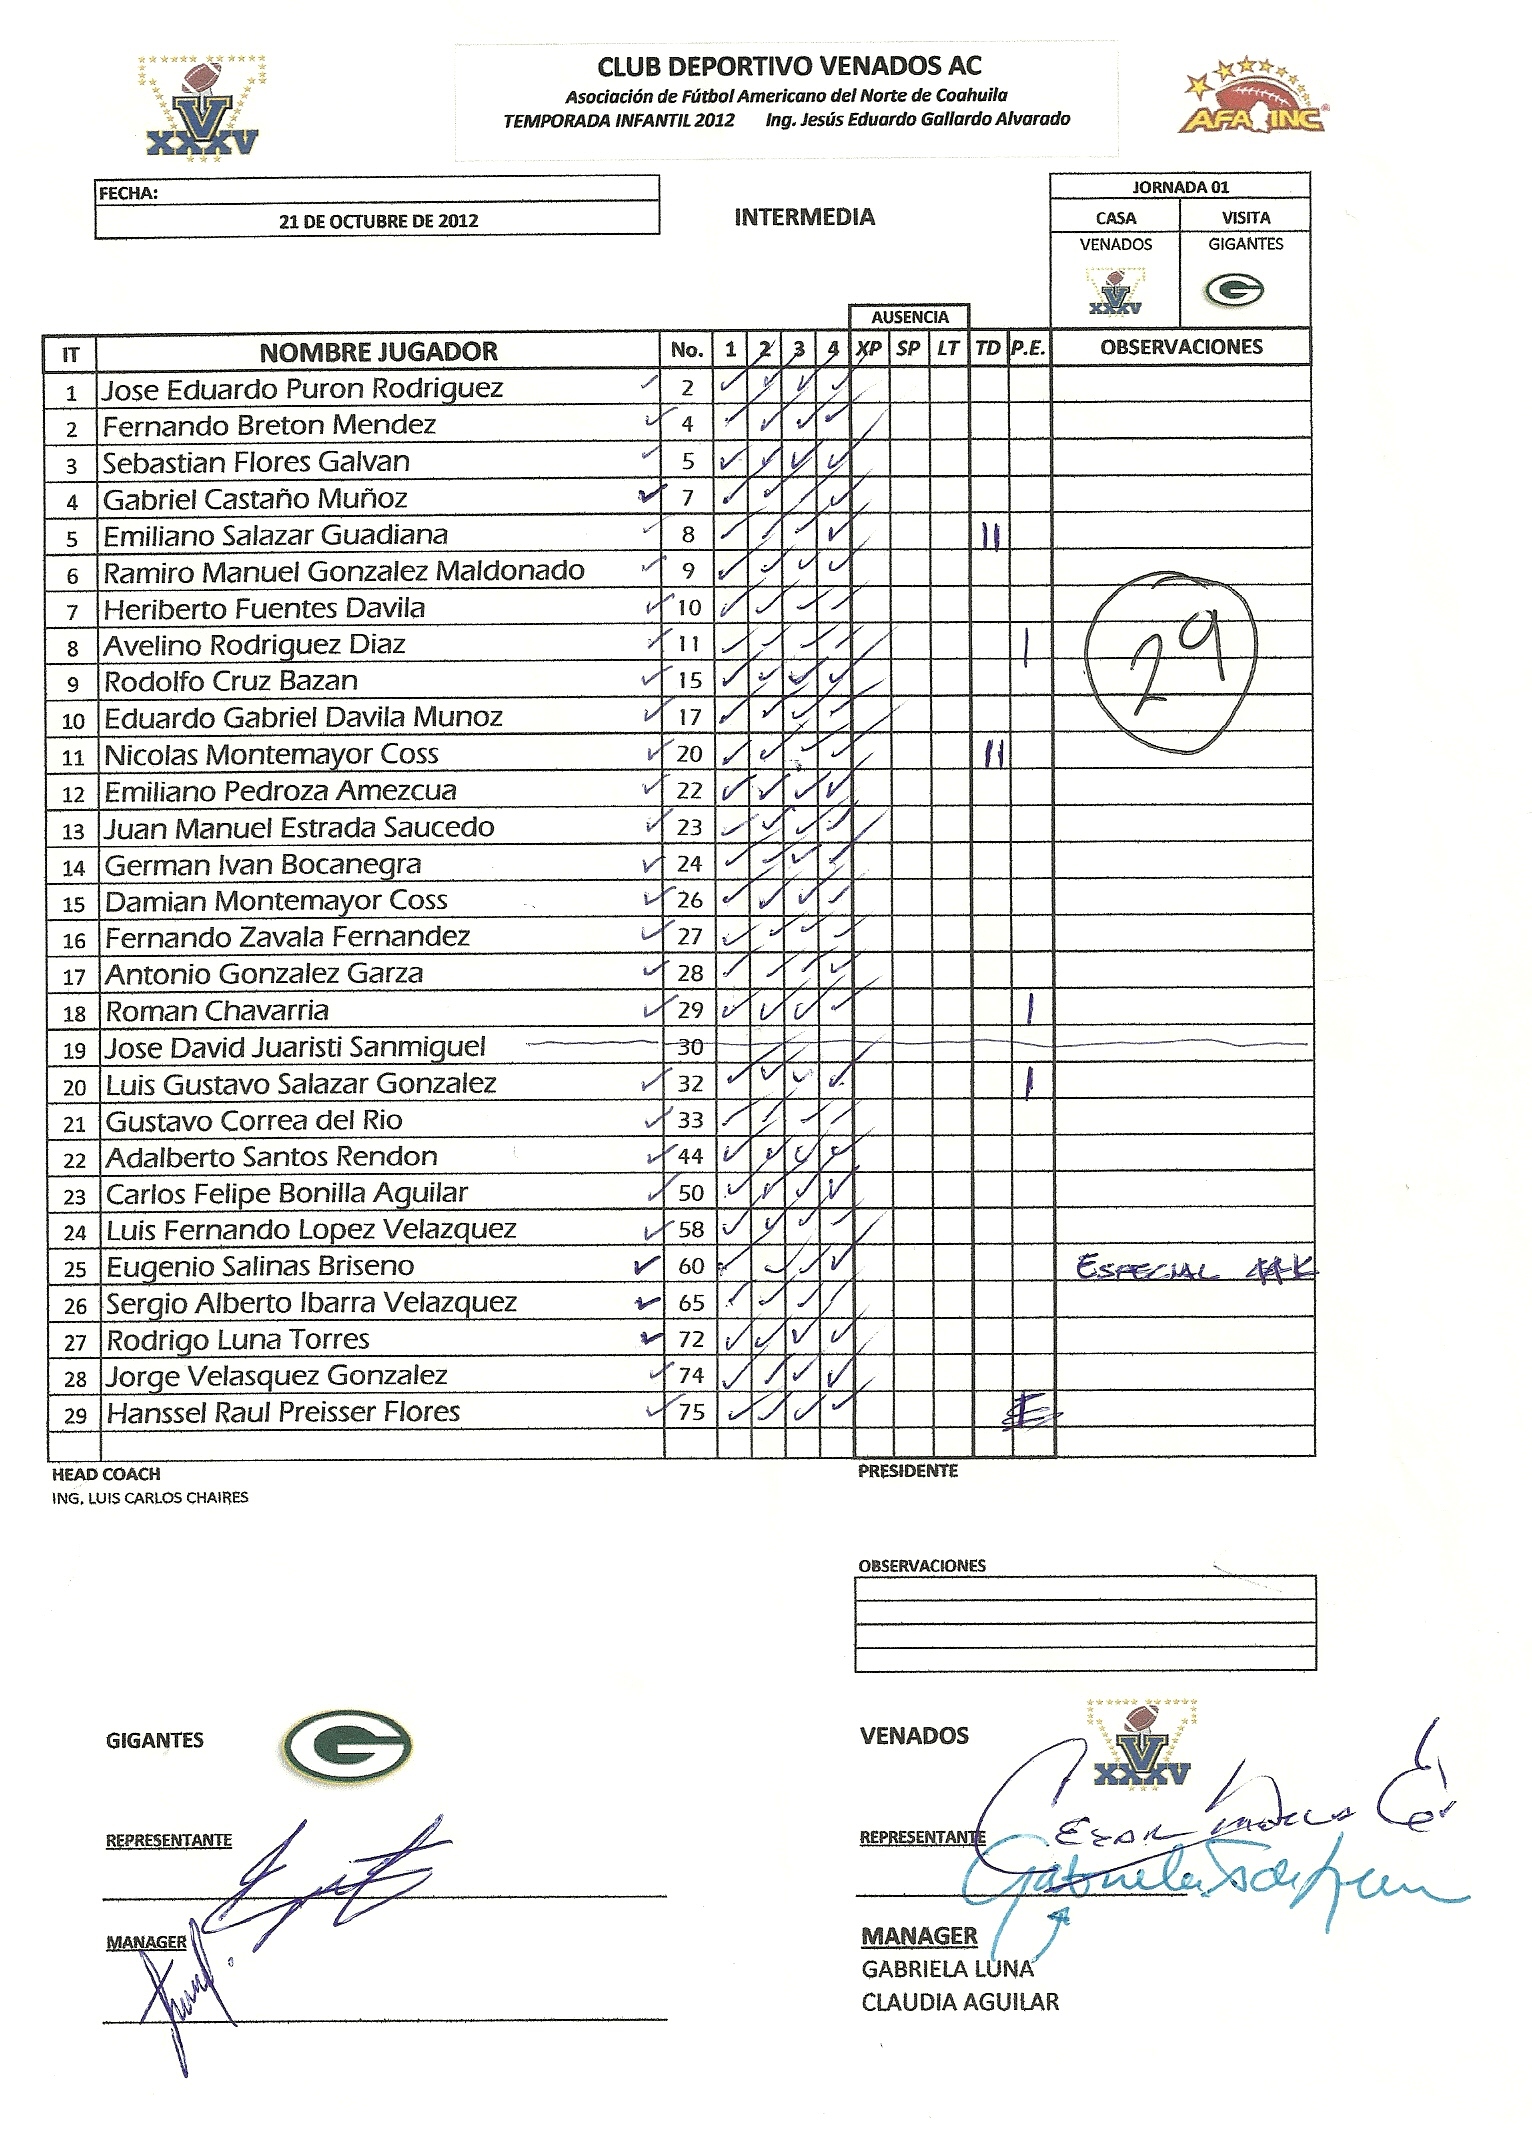 CLUB DEPORTIVO VENADOS AC
Asociación de Fútbol Americano del Norte de Coahuila
TEMPORADA INFANTIL 2012 Ing. Jesús Eduardo Gallardo Alvarado
V
XXXV
AFA INC
FECHA:
21 DE OCTUBRE DE 2012
INTERMEDIA
JORNADA 01
CASA VISITA
VENADOS GIGANTES
V
XXXV
G
AUSENCIA
IT NOMBRE JUGADOR No. 1 2 3 4 XP SP LT TD P.E. OBSERVACIONES
1 Jose Eduardo Puron Rodriguez ✓ 2 ✓ ✓ ✓ ✓
2 Fernando Breton Mendez ✓ 4 ✓ ✓ ✓ ✓
3 Sebastian Flores Galvan ✓ 5 ✓ ✓ ✓ ✓
4 Gabriel Castaño Muñoz ✓ 7 ✓ ✓ ✓ ✓
5 Emiliano Salazar Guadiana ✓ 8 ✓ ✓ ✓ ✓ II
6 Ramiro Manuel Gonzalez Maldonado ✓ 9 ✓ ✓ ✓ ✓
7 Heriberto Fuentes Davila ✓ 10 ✓ ✓ ✓ ✓
8 Avelino Rodriguez Diaz ✓ 11 ✓ ✓ ✓ ✓ I
29
9 Rodolfo Cruz Bazan ✓ 15 ✓ ✓ ✓ ✓
10 Eduardo Gabriel Davila Munoz ✓ 17 ✓ ✓ ✓ ✓
11 Nicolas Montemayor Coss ✓ 20 ✓ ✓ ✓ ✓ II
12 Emiliano Pedroza Amezcua ✓ 22 ✓ ✓ ✓ ✓
13 Juan Manuel Estrada Saucedo ✓ 23 ✓ ✓ ✓ ✓
14 German Ivan Bocanegra ✓ 24 ✓ ✓ ✓ ✓
15 Damian Montemayor Coss ✓ 26 ✓ ✓ ✓ ✓
16 Fernando Zavala Fernandez ✓ 27 ✓ ✓ ✓ ✓
17 Antonio Gonzalez Garza ✓ 28 ✓ ✓ ✓ ✓
18 Roman Chavarria ✓ 29 ✓ ✓ ✓ ✓ I
19 Jose David Juaristi Sanmiguel 30
20 Luis Gustavo Salazar Gonzalez ✓ 32 ✓ ✓ ✓ ✓ I
21 Gustavo Correa del Rio ✓ 33 ✓ ✓ ✓ ✓
22 Adalberto Santos Rendon ✓ 44 ✓ ✓ ✓ ✓
23 Carlos Felipe Bonilla Aguilar ✓ 50 ✓ ✓ ✓ ✓
24 Luis Fernando Lopez Velazquez ✓ 58 ✓ ✓ ✓ ✓
25 Eugenio Salinas Briseno ✓ 60 ✓ ✓ ✓ ✓ ESPECIAL
26 Sergio Alberto Ibarra Velazquez ✓ 65 ✓ ✓ ✓ ✓
27 Rodrigo Luna Torres ✓ 72 ✓ ✓ ✓ ✓
28 Jorge Velasquez Gonzalez ✓ 74 ✓ ✓ ✓ ✓
29 Hanssel Raul Preisser Flores ✓ 75 ✓ ✓ ✓ ✓
HEAD COACH
ING. LUIS CARLOS CHAIRES
PRESIDENTE
OBSERVACIONES
GIGANTES
G
REPRESENTANTE
MANAGER
VENADOS
V
XXXV
REPRESENTANTE
Gabriela
MANAGER
GABRIELA LUNA
CLAUDIA AGUILAR